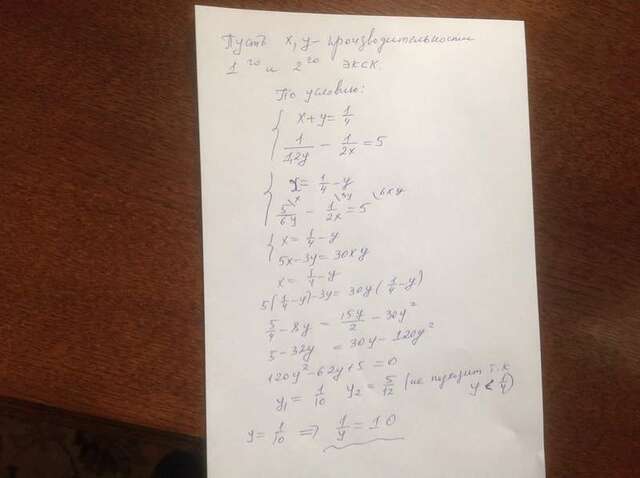 Пусть x, y - производительности
1го и 2го экск.
По условию:
x + y = 1/4
1/1,2y - 1/2x = 5
x = 1/4 - y
5/6y \x - 1/2x \3y = 5 \6xy
x = 1/4 - y
5x - 3y = 30xy
x = 1/4 - y
5(1/4 - y) - 3y = 30y(1/4 - y)
5/4 - 8y = 15y/2 - 30y²
5 - 32y = 30y - 120y²
120y² - 62y + 5 = 0
y₁ = 1/10 y₂ = 5/12 (не подходит т.к y < 1/4)
y = 1/10 ⇒ 1/y = 10